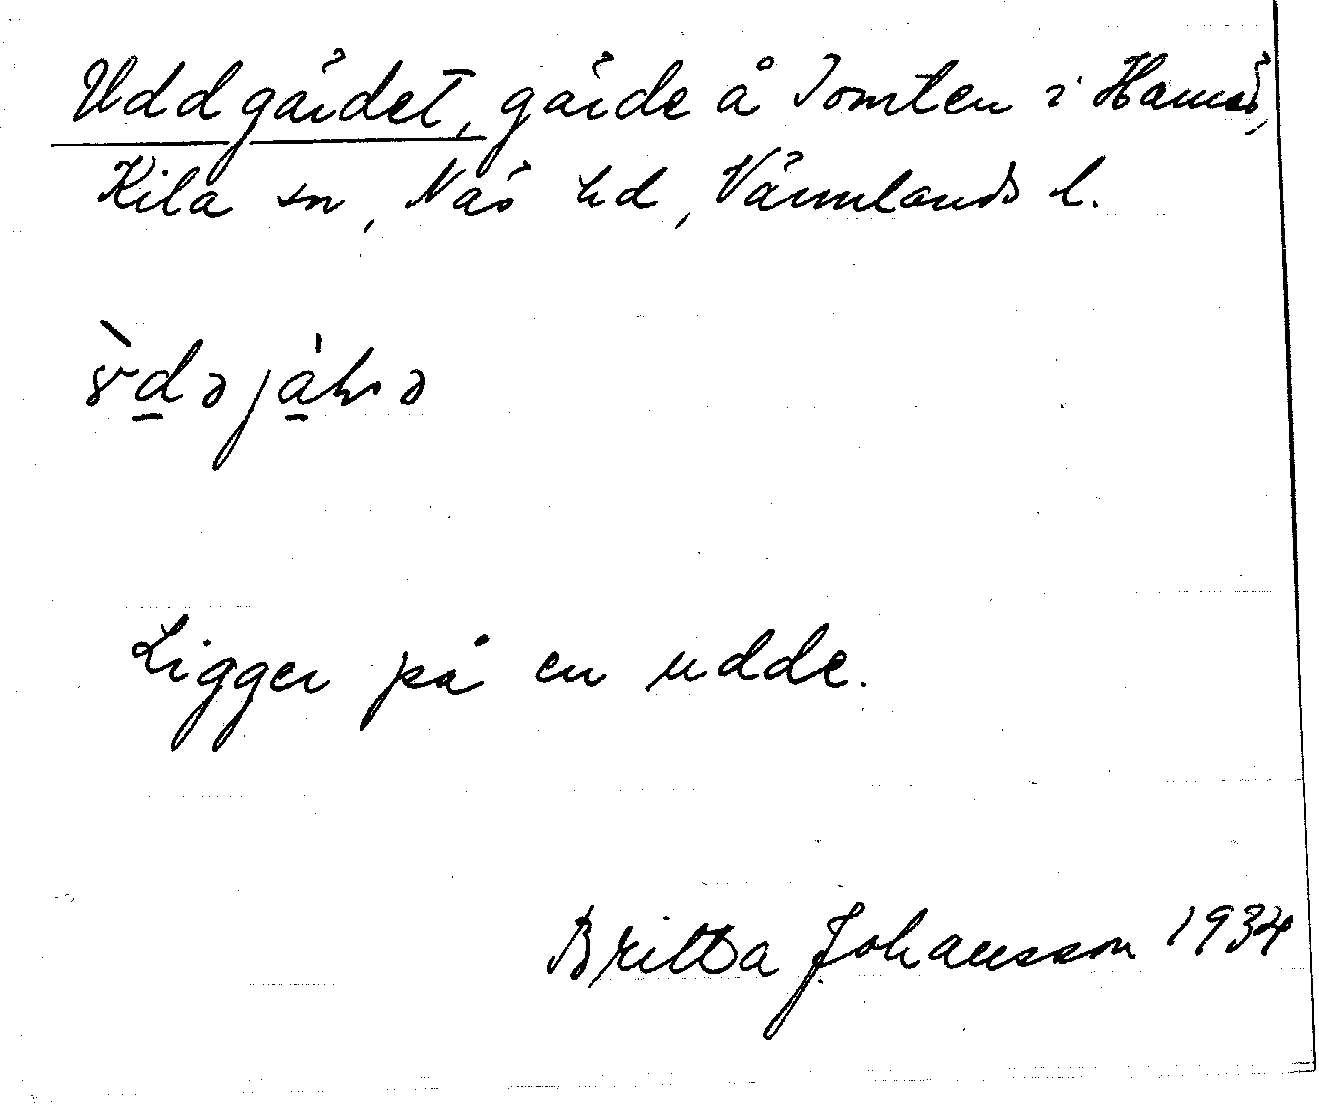 Uddgärdet, gärde å Tomten i
Kila sn, Näs hd, Värmlands l.
Ligger på en udde.
Britta Johansson 1934